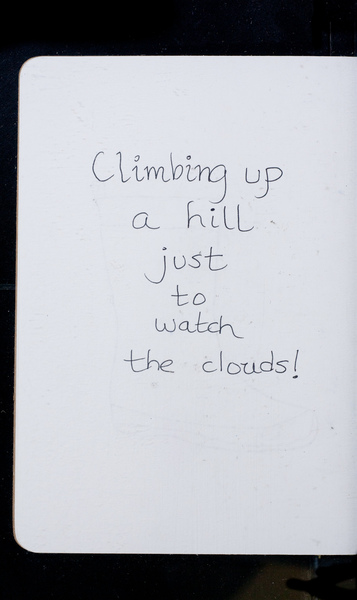 Climbing up
a hill
just
to
watch
the clouds!